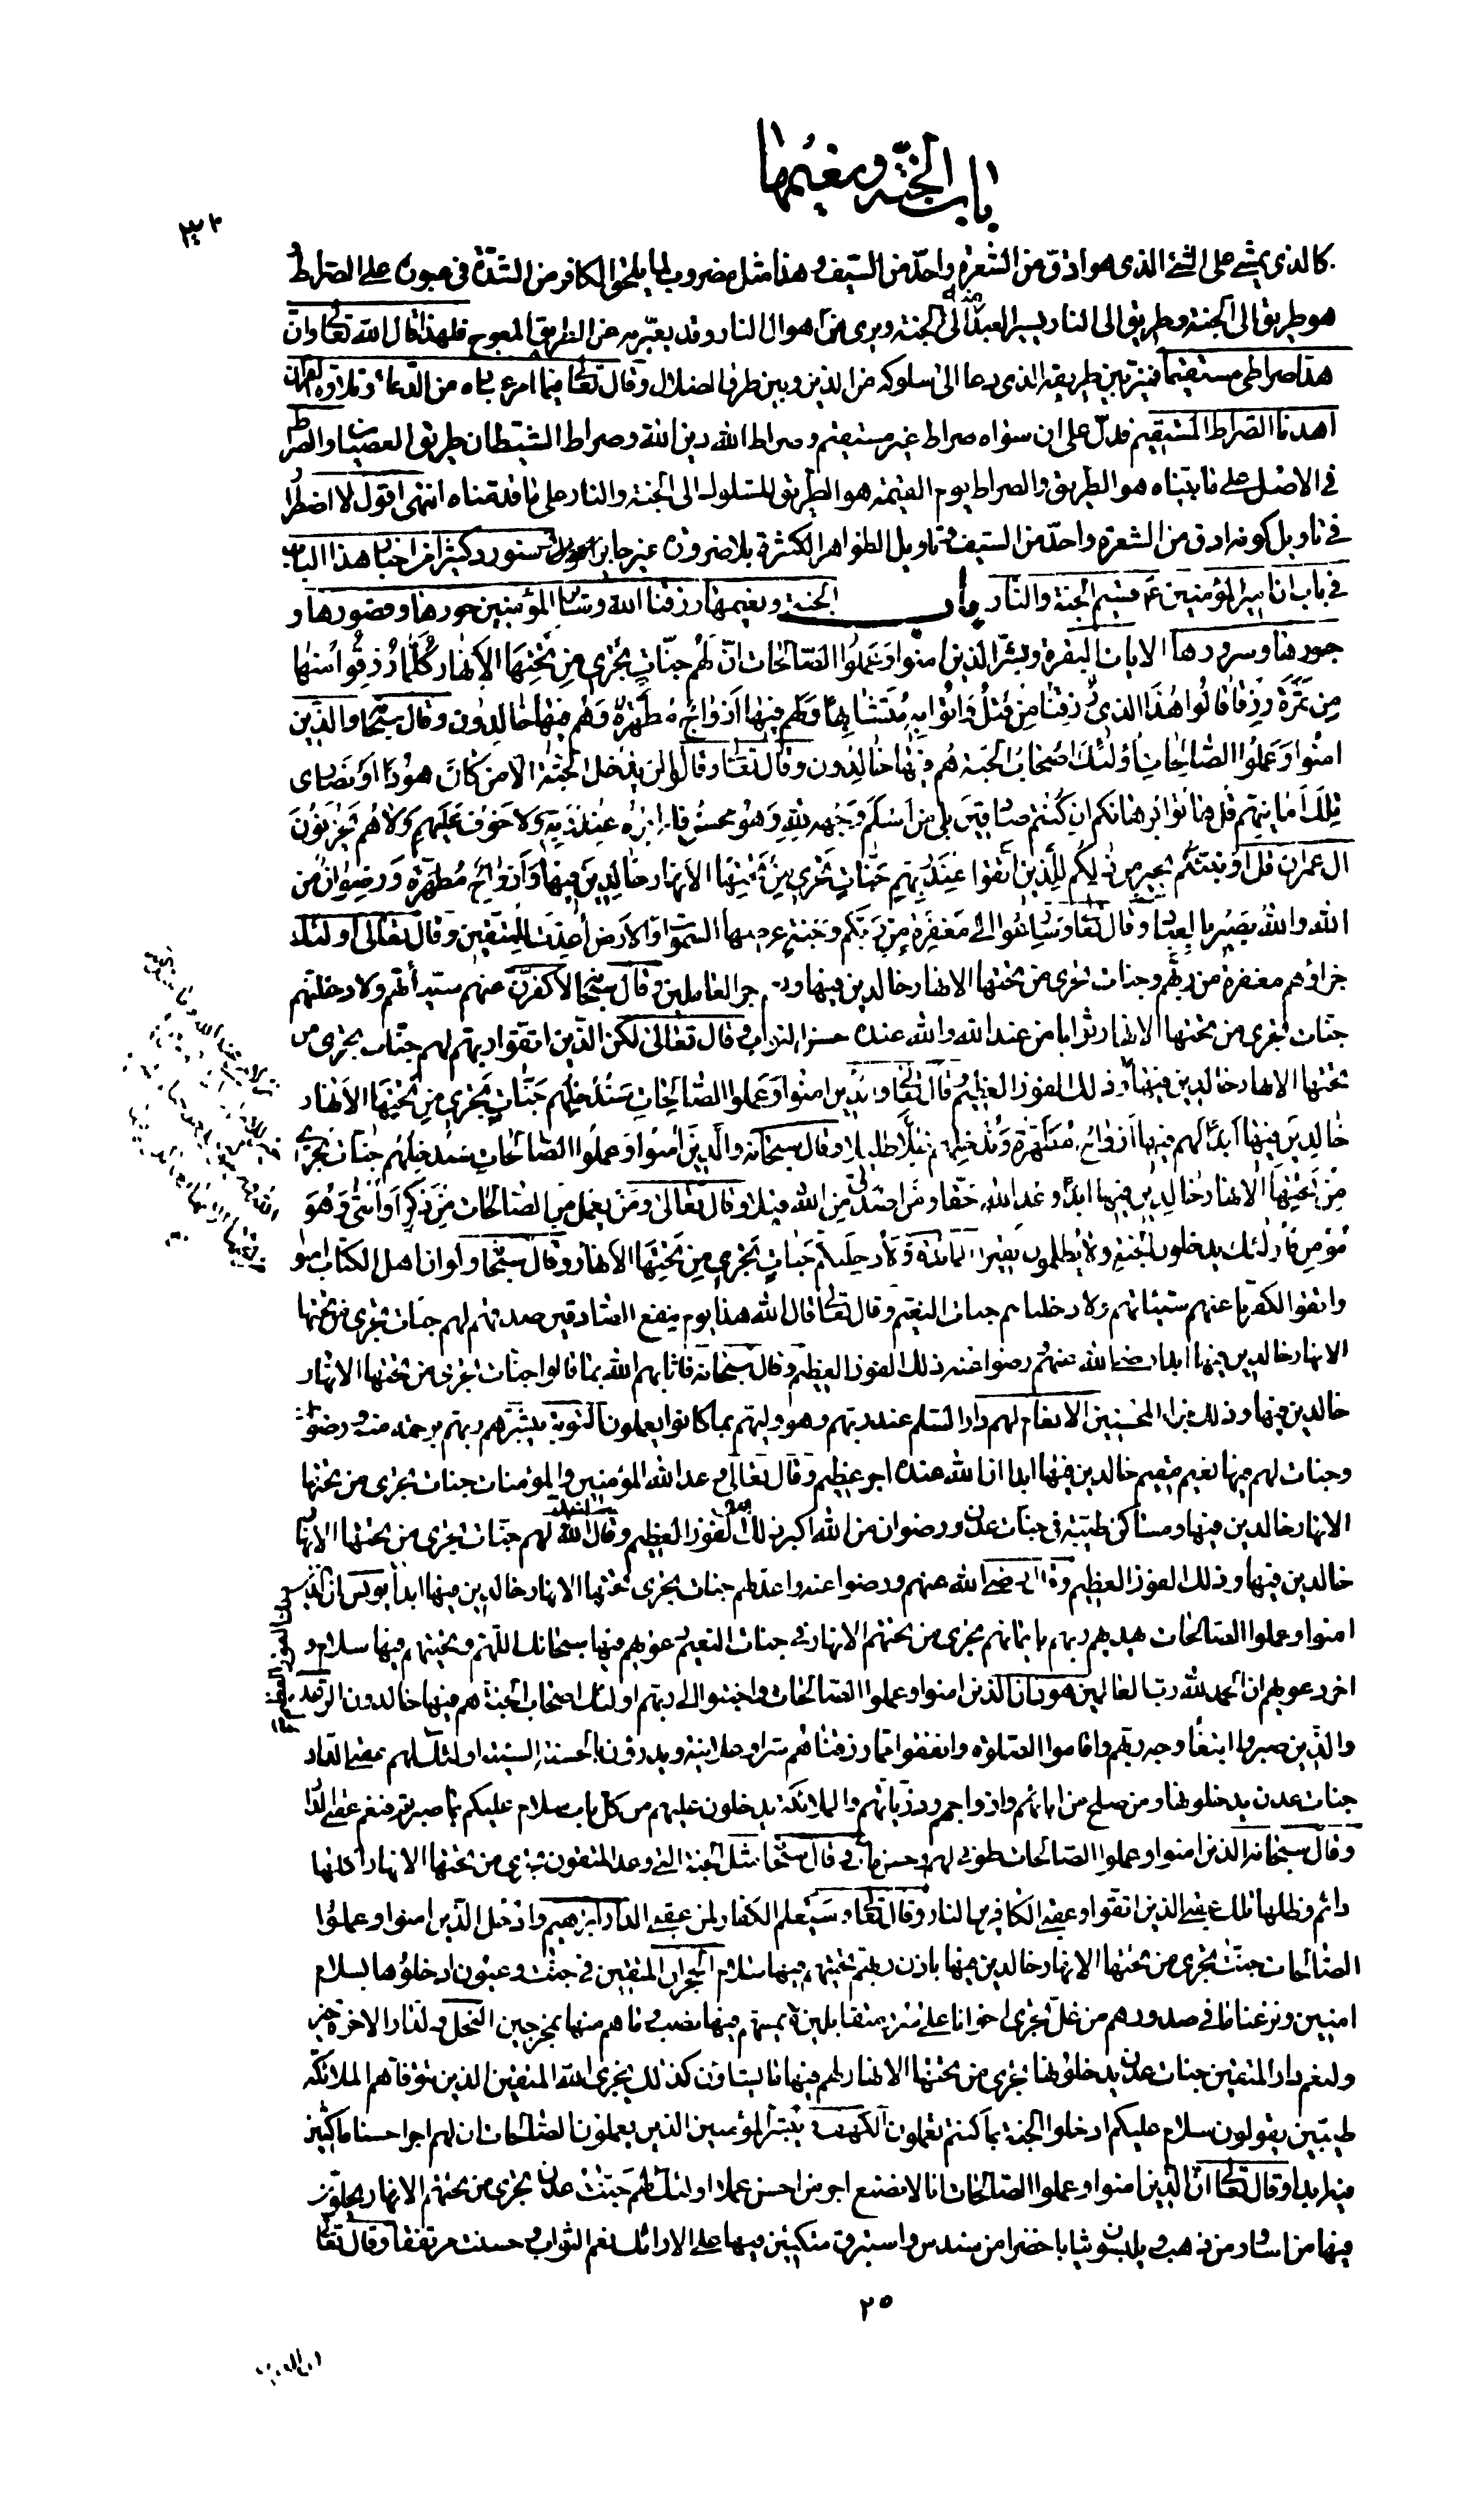 باب الجنة ونعيمها
٣٢
كالذي يمشي على الشئ الذي هو ادق من الشعرة واحدّ من السيف وهذا مثل مضروب لما يلحق الكافر من الشدة في عبوره على الصراط
هو طريق الى الجنة وطريق الى النار يسير العبد منه الى الجنة ويرى من اهوال النار وقد يعبّر به عن الطريق المعوج فلهذا قال الله تعالى وانّ
هذا صراطي مستقيما فميّز بين طريقه الذي دعا الى سلوكه من الدين وبين طرق الضلال وقال تعالى فيما امر عباده من الدعاء وتلاوة القران
اهدنا الصراط المستقيم فدلّ على ان سواه صراط غير مستقيم وصراط الله دين الله وصراط الشيطان طريق العصيان والصراط
في الاصل على ما بيّناه هو الطريق والصراط يوم القيمة هو الطريق للسلوك الى الجنة والنار على ما قدمناه انتهى اقول لا اضطرار
في تاويل كونه ادق من الشعرة واحدّ من السيف وتاويل الظواهر الكثيرة بلا ضرورة غير جايز وسنورد كثيرا من اخبار هذا الباب
في باب ان امير المؤمنين ع قسيم الجنة والنار باب الجنة ونعيمها رزقنا الله وسائر المؤمنين حورها وقصورها و
حبورها وسرورها الايات البقرة وبشّر الذين امنوا وعملوا الصالحات انّ لهم جنّاتٍ تجري من تحتها الانهار كلّما رزقوا منها
من ثمرة رزقا قالوا هذا الذي رزقنا من قبل واتوا به متشابها ولهم فيها ازواج مطهرة وهم فيها خالدون وقال سبحانه والذين
امنوا وعملوا الصالحات اولئك اصحاب الجنة هم فيها خالدون وقال تعالى وقالوا لن يدخل الجنة الا من كان هودا او نصارى
تلك امانيهم قل هاتوا برهانكم ان كنتم صادقين بلى من اسلم وجهه لله وهو محسن فله اجره عند ربه ولا خوف عليهم ولا هم يحزنون
ال عمران قل اؤنبئكم بخير من ذلكم للذين اتقوا عند ربهم جنّات تجري من تحتها الانهار خالدين فيها وازواج مطهرة ورضوان من
الله والله بصير بالعباد وقال تعالى وسارعوا الى مغفرة من ربكم وجنة عرضها السموات والارض اعدت للمتقين وقال تعالى اولئك
جزاؤهم مغفرة من ربهم وجنات تجري من تحتها الانهار خالدين فيها ونعم اجر العاملين وقال سبحانه لاكفرنّ عنهم سيئاتهم ولادخلنهم
جنّات تجري من تحتها الانهار ثوابا من عند الله والله عنده حسن الثواب وقال تعالى لكن الذين اتقوا ربهم لهم جنّات تجري من
تحتها الانهار خالدين فيها وذلك الفوز العظيم وقال تعالى والذين امنوا وعملوا الصالحات سندخلهم جنات تجري من تحتها الانهار
خالدين فيها ابدا لهم فيها ازواج مطهرة وندخلهم ظلا ظليلا وقال سبحانه والذين امنوا وعملوا الصالحات سندخلهم جنات تجري
من تحتها الانهار خالدين فيها ابدا وعد الله حقا ومن اصدق من الله قيلا وقال تعالى ومن يعمل من الصالحات من ذكر او انثى وهو
مؤمن فاولئك يدخلون الجنة ولا يظلمون نقيرا المائدة ولادخلنكم جنات تجري من تحتها الانهار وقال سبحانه ولو ان اهل الكتاب امنوا
واتقوا لكفرنا عنهم سيئاتهم ولادخلناهم جنات النعيم وقال تعالى قال الله هذا يوم ينفع الصادقين صدقهم لهم جنات تجري من تحتها
الانهار خالدين فيها ابدا رضي الله عنهم ورضوا عنه ذلك الفوز العظيم وقال سبحانه فاثابهم الله بما قالوا جنات تجري من تحتها الانهار
خالدين فيها وذلك جزاء المحسنين الانعام لهم دار السلم عند ربهم وهو وليهم بما كانوا يعملون التوبة يبشرهم ربهم برحمة منه ورضوان
وجنات لهم فيها نعيم مقيم خالدين فيها ابدا ان الله عنده اجر عظيم وقال تعالى وعد الله المؤمنين والمؤمنات جنات تجري من تحتها
الانهار خالدين فيها ومساكن طيبة في جنات عدن ورضوان من الله اكبر ذلك هو الفوز العظيم وقال اعد الله لهم جنات تجري من تحتها الانهار
خالدين فيها وذلك الفوز العظيم وقال رضي الله عنهم ورضوا عنه واعد لهم جنات تجري تحتها الانهار خالدين فيها ابدا يونس ان الذين
ذلك الفوز العظيم
امنوا وعملوا الصالحات يهديهم ربهم بايمانهم تجري من تحتهم الانهار في جنات النعيم دعويهم فيها سبحانك اللهم وتحيتهم فيها سلام و
اخر دعويهم ان الحمد لله رب العالمين هود ان الذين امنوا وعملوا الصالحات واخبتوا الى ربهم اولئك اصحاب الجنة هم فيها خالدون الرعد
والذين صبروا ابتغاء وجه ربهم واقاموا الصلوة وانفقوا مما رزقناهم سرا وعلانية ويدرؤن بالحسنة السيئة اولئك لهم عقبى الدار
جنات عدن يدخلونها ومن صلح من ابائهم وازواجهم وذرياتهم والملائكة يدخلون عليهم من كل باب سلام عليكم بما صبرتم فنعم عقبى الدار
وقال سبحانه الذين امنوا وعملوا الصالحات طوبى لهم وحسن ماب وقال سبحانه مثل الجنة التي وعد المتقون تجري من تحتها الانهار اكلها
دائم وظلها تلك عقبى الذين اتقوا وعقبى الكافرين النار وقال تعالى وسيعلم الكفار لمن عقبى الدار ابراهيم وادخل الذين امنوا وعملوا
الصالحات جنّات تجري من تحتها الانهار خالدين فيها باذن ربهم تحيتهم فيها سلام الحجر ان المتقين في جنّات وعيون ادخلوها بسلام
امنين ونزعنا ما في صدورهم من غلّ تجري اخوانا على سرر متقابلين لا يمسهم فيها نصب وما هم منها بمخرجين النحل ولدار الاخرة خير
ولنعم دار المتقين جنات عدن يدخلونها تجري من تحتها الانهار لهم فيها ما يشاؤن كذلك يجزي الله المتقين الذين تتوفاهم الملائكة
طيبين يقولون سلام عليكم ادخلوا الجنة بما كنتم تعملون الكهف ويبشر المؤمنين الذين يعملون الصالحات ان لهم اجرا حسنا ماكثين
فيه ابدا وقال تعالى انّ الذين امنوا وعملوا الصالحات انا لا نضيع اجر من احسن عملا اولئك لهم جنّت عدن تجري من تحتهم الانهار يحلون
فيها من اساور من ذهب ويلبسون ثيابا خضرا من سندس واستبرق متكئين فيها على الارائك نعم الثواب وحسنت مرتفقا وقال تعالى
٢٥